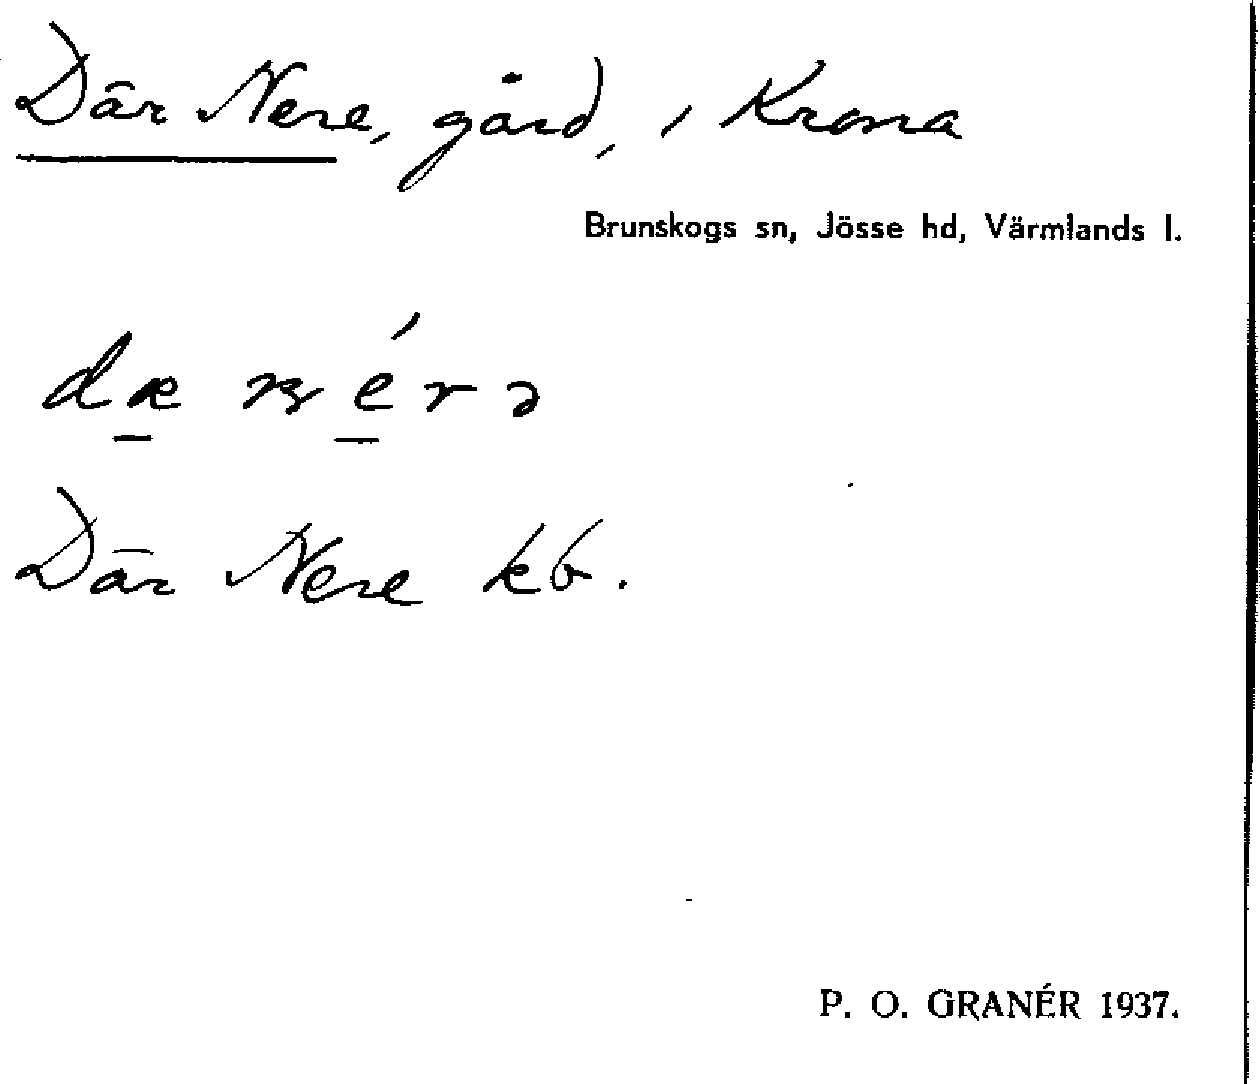 Där Nere, gård, i Krona
Brunskogs sn, Jösse hd, Värmlands l.
dæ nérə
Där Nere kb.
P. O. GRANÉR 1937.